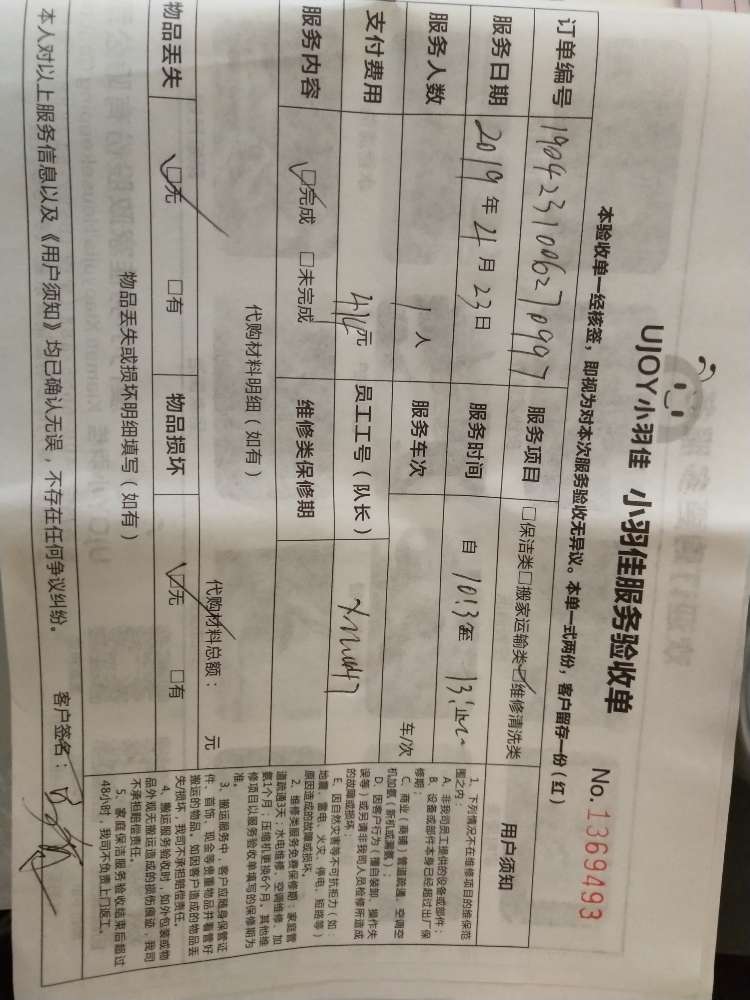 UJOY小羽佳 小羽佳服务验收单
No.1369493
本验收单一经核签，即视为对本次服务验收无异议。本单一式两份，客户留存一份（红）
订单编号 190423100627099 服务项目 □保洁类□搬家运输类☑维修清洗类 用户须知
服务日期 2019年4月23日 服务时间 自 10:30至
服务人数 1人 服务车次 车/次
支付费用 414元 员工工号（队长）
服务内容 ☑完成 □未完成 维修类保修期
代购材料明细（如有） 代购材料总额： 元
物品丢失 ☑无 □有 物品损坏 ☑无 □有
物品丢失或损坏明细填写（如有）
本人对以上服务信息以及《用户须知》均已确认无误，不存在任何争议纠纷。 客户签名：
1、下列情况不在维修项目的维保范
围之内：
A、非我司员工提供的设备或部件；
B、设备或部件本身已经超过出厂保
修期；
C、商业（商铺）管道疏通、空调空
机加氨（新机或漏氨）；
D、因用户行为（擅自装卸、操作失
误等）或另请非我司人员检修所造成
的故障或损坏；
E、因自然灾害等不可抗拒力（如：
地震、雷电、水火、停电、短路等）
原因造成的故障或损坏。
2、维修类服务免费保修期：家庭管
道疏通3天；水电维修、空调维修、加
氨1个月；压缩机更换6个月，其他维
修项目以服务验收单填写的保修期为
准。
3、搬运服务中，客户应随身保管证
件、首饰、现金等贵重物品并看管好
搬运的物品，如因客户造成的物品丢
失/损坏，我司不承担赔偿责任。
4、搬运服务验收时，如外包装或物
品外观无搬运造成的损伤痕迹，我司
不承担赔偿责任。
5、家庭保洁服务验收结束后超过
48小时，我司不负责上门返工。